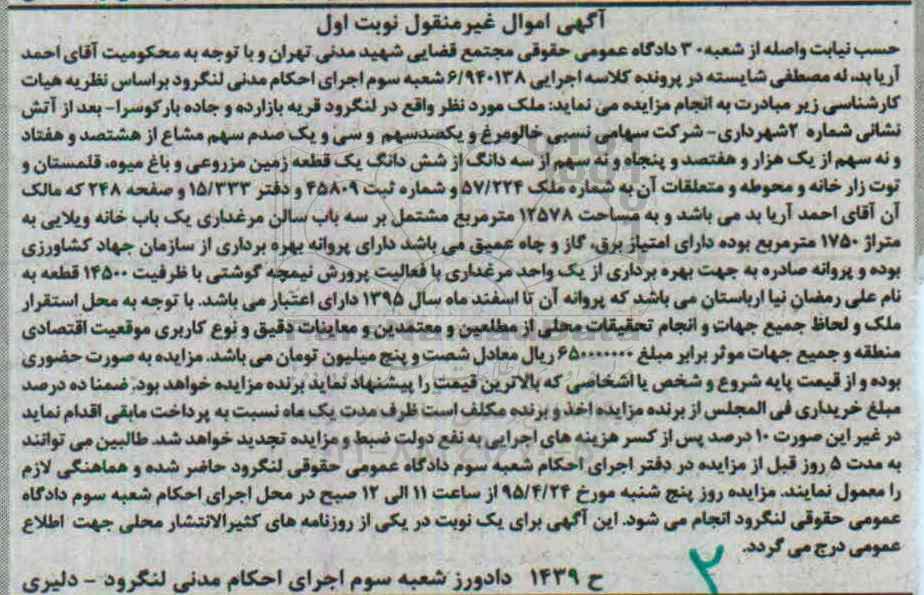 آگهی اموال غیرمنقول نوبت اول
حسب نیابت واصله از شعبه ۳۰ دادگاه عمومی حقوقی مجتمع قضایی شهید مدنی تهران و با توجه به محکومیت آقای احمد
آریا بد، له مصطفی شایسته در پرونده کلاسه اجرایی ۶/۹۴۰۱۳۸ شعبه سوم اجرای احکام مدنی لنگرود براساس نظریه هیات
کارشناسی زیر مبادرت به انجام مزایده می نماید: ملک مورد نظر واقع در لنگرود قریه بازارده و جاده بارکوسرا- بعد از آتش
نشانی شماره ۲شهرداری- شرکت سهامی نسبی خالومرغ و یکصدسهم و سی و یک صدم سهم مشاع از هشتصد و هفتاد
و نه سهم از یک هزار و هفتصد و پنجاه و نه سهم از سه دانگ از شش دانگ یک قطعه زمین مزروعی و باغ میوه، قلمستان و
توت زار خانه و محوطه و متعلقات آن به شماره ملک ۵۷/۲۲۴ و شماره ثبت ۴۵۸۰۹ و دفتر ۱۵/۳۳۳ و صفحه ۲۴۸ که مالک
آن آقای احمد آریا بد می باشد و به مساحت ۱۲۵۷۸ مترمربع مشتمل بر سه باب سالن مرغداری یک باب خانه ویلایی به
متراژ ۱۷۵۰ مترمربع بوده دارای امتیاز برق، گاز و چاه عمیق می باشد دارای پروانه بهره برداری از سازمان جهاد کشاورزی
بوده و پروانه صادره به جهت بهره برداری از یک واحد مرغداری با فعالیت پرورش نیمچه گوشتی با ظرفیت ۱۴۵۰۰ قطعه به
نام علی رمضان نیا ارباستان می باشد که پروانه آن تا اسفند ماه سال ۱۳۹۵ دارای اعتبار می باشد. با توجه به محل استقرار
ملک و لحاظ جمیع جهات و انجام تحقیقات محلی از مطلعین و معتمدین و معاینات دقیق و نوع کاربری موقعیت اقتصادی
منطقه و جمیع جهات موثر برابر مبلغ ۶۵۰۰۰۰۰۰۰ ریال معادل شصت و پنج میلیون تومان می باشد. مزایده به صورت حضوری
بوده و از قیمت پایه شروع و شخص یا اشخاصی که بالاترین قیمت را پیشنهاد نماید برنده مزایده خواهد بود. ضمنا ده درصد
مبلغ خریداری فی المجلس از برنده مزایده اخذ و برنده مکلف است ظرف مدت یک ماه نسبت به پرداخت مابقی اقدام نماید
در غیر این صورت ۱۰ درصد پس از کسر هزینه های اجرایی به نفع دولت ضبط و مزایده تجدید خواهد شد. طالبین می توانند
به مدت ۵ روز قبل از مزایده در دفتر اجرای احکام شعبه سوم دادگاه عمومی حقوقی لنگرود حاضر شده و هماهنگی لازم
را معمول نمایند. مزایده روز پنج شنبه مورخ ۹۵/۴/۲۴ از ساعت ۱۱ الی ۱۲ صبح در محل اجرای احکام شعبه سوم دادگاه
عمومی حقوقی لنگرود انجام می شود. این آگهی برای یک نوبت در یکی از روزنامه های کثیرالانتشار محلی جهت اطلاع
عمومی درج می گردد.
ح ۱۴۳۹ دادورز شعبه سوم اجرای احکام مدنی لنگرود - دلیری
۲